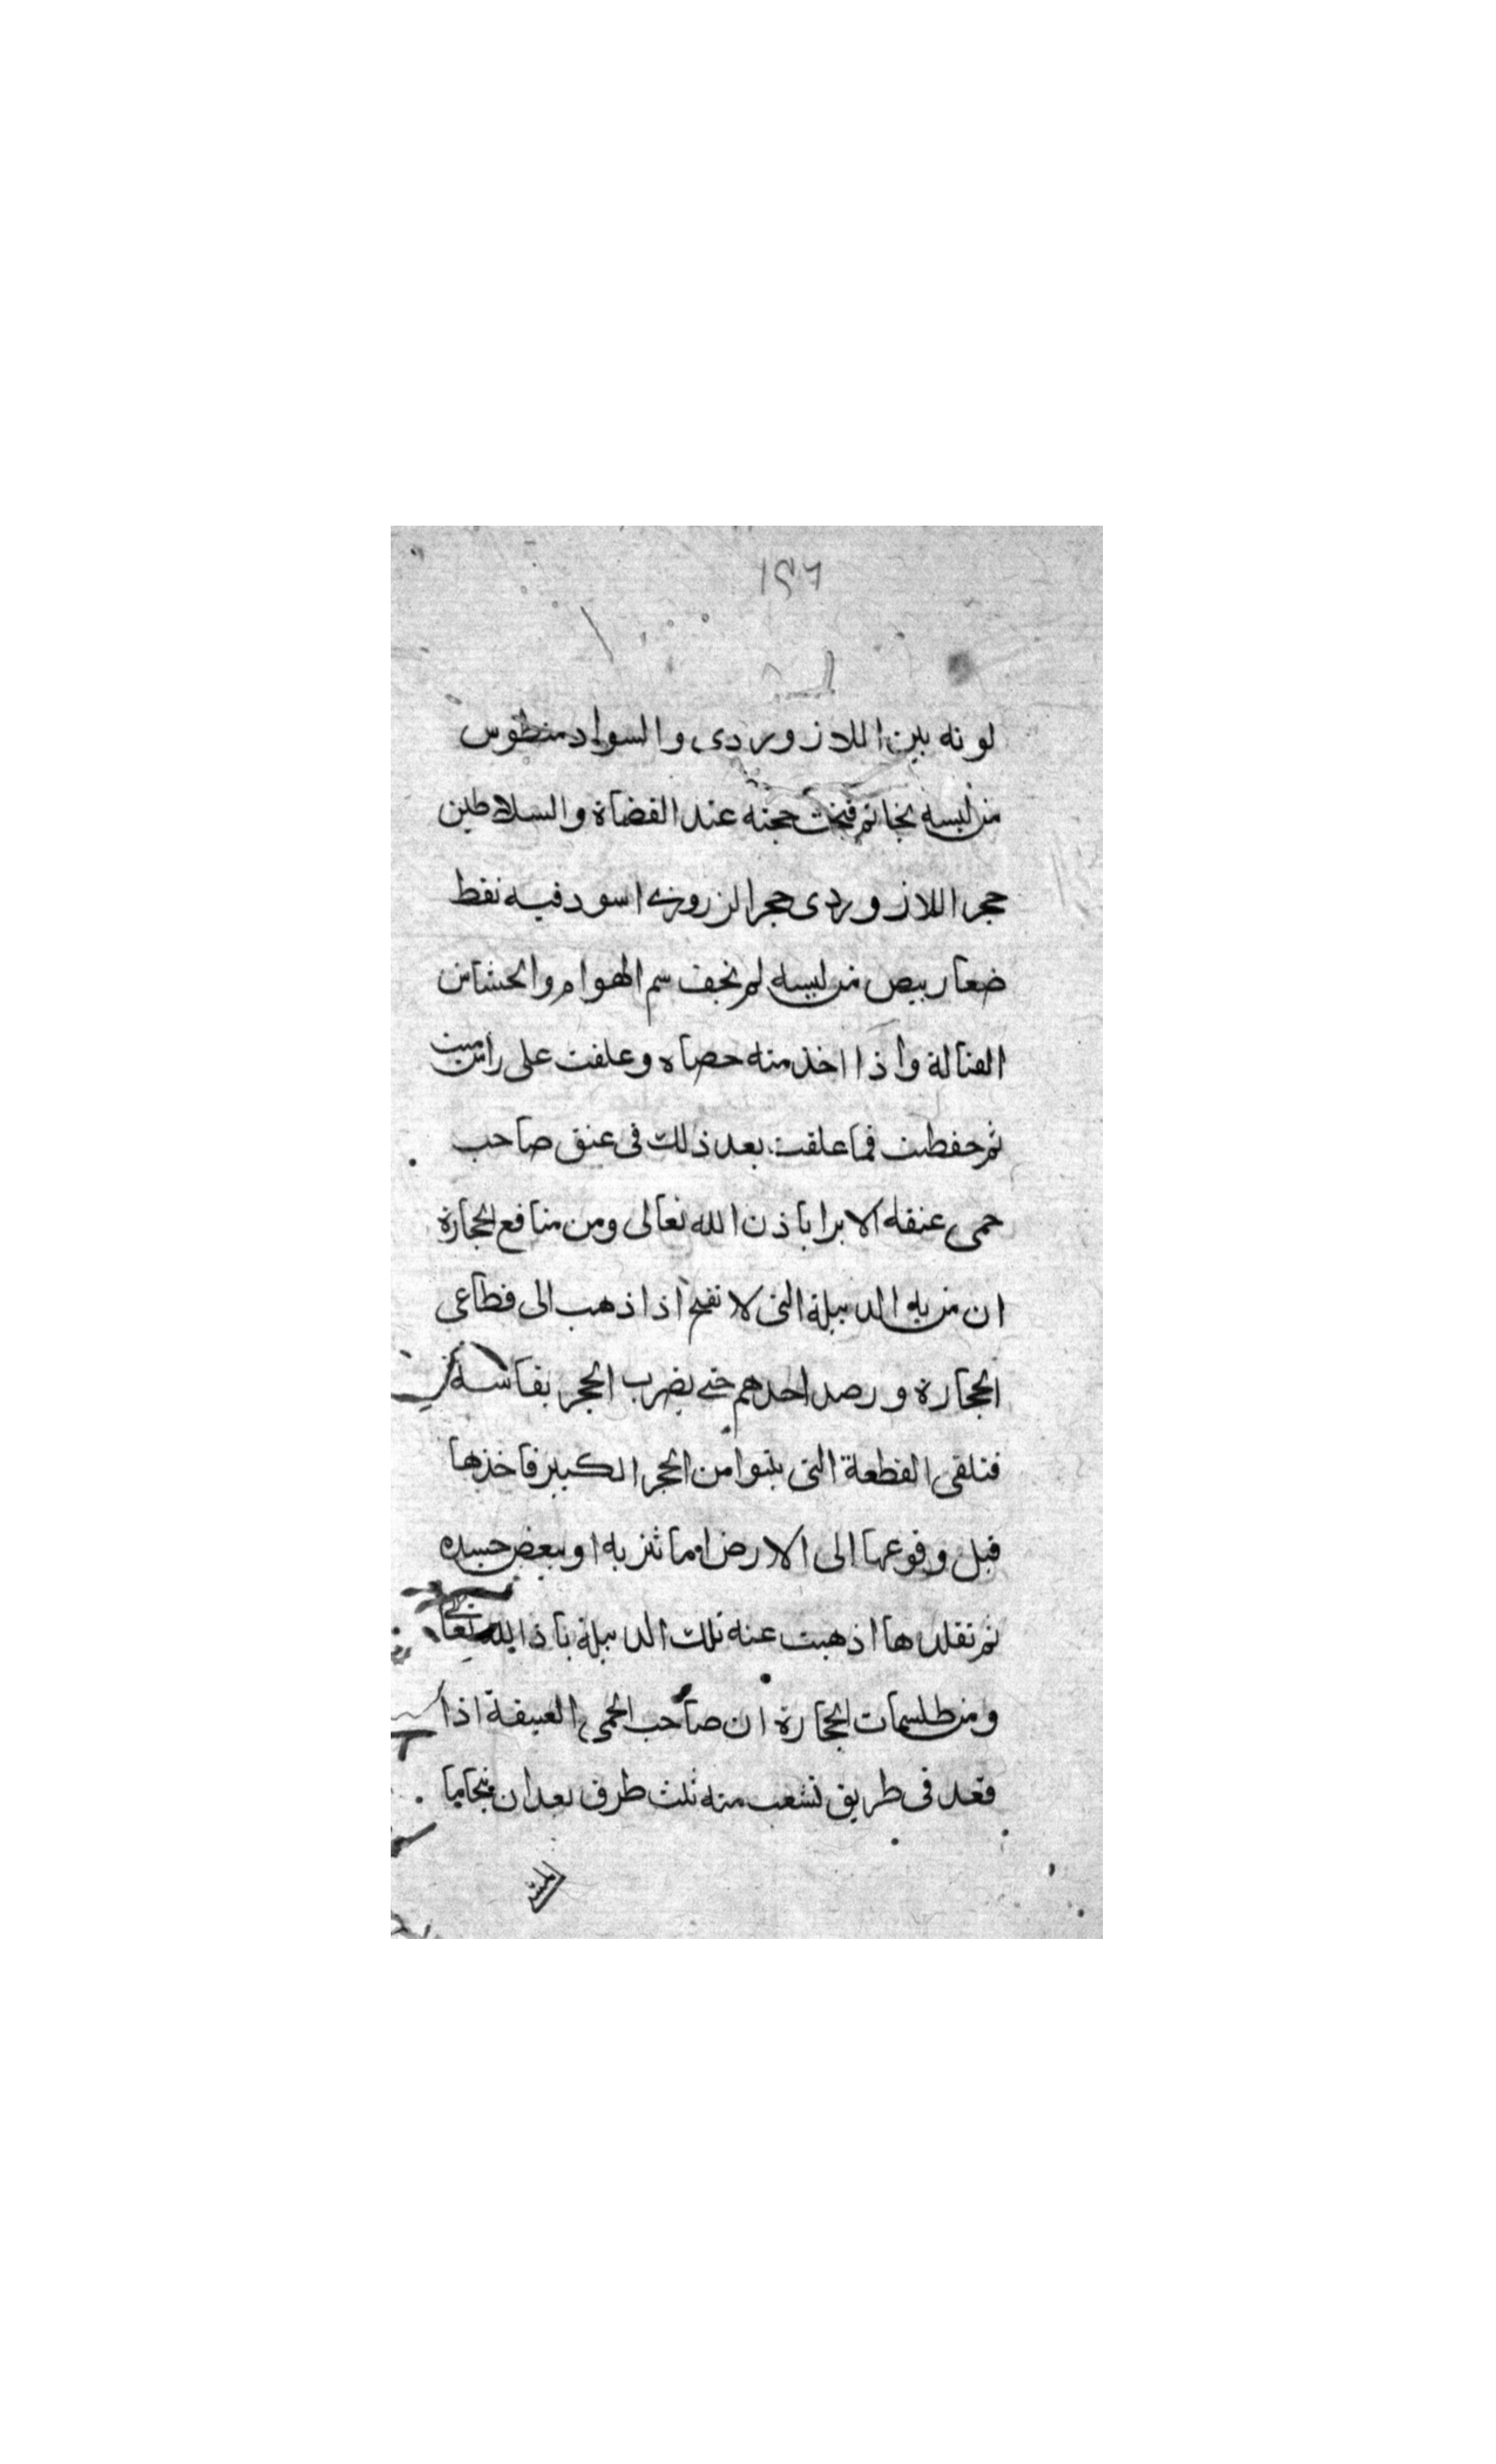 ١٩٦
لونه بين اللازوردى والسواد منطوس
من لبسه بخاتم فتحت حجته عند القضاة والسلاطين
حجر اللازوردى حجر الزروزى اسود فيه نقط
ضعار بيض من لبسه لم يخف سم الهوام والحشائش
القتالة واذا اخذ منه حصاه وعلقت على راس ميت
ثم حفطت فما علقت بعد ذلك فى عنق صاحب
حمى عتيقه الا برا باذن الله تعالى ومن منافع الحجارة
ان من به الدبيلة التى لا تفتح اذا ذهب الى قطاعى
الحجارة ورصد احدهم حتى يضرب الحجر بفاسه
فتلقى القطعة التى يتبوا من الحجر الكبير فاخذها
قبل وقوعها الى الارض اما بثوبه او ببعض جسده
ثم تقلدها اذهبت عنه تلك الدبيلة باذ الله تعالى
ومن طلسمات الحجارة ان صاحب الحمى العتيقة اذا
قعد فى طريق تشعب منه ثلث طرف بعد ان